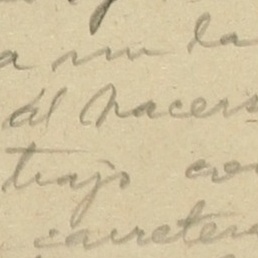 a mi la
él hacers
trajo con
carretera